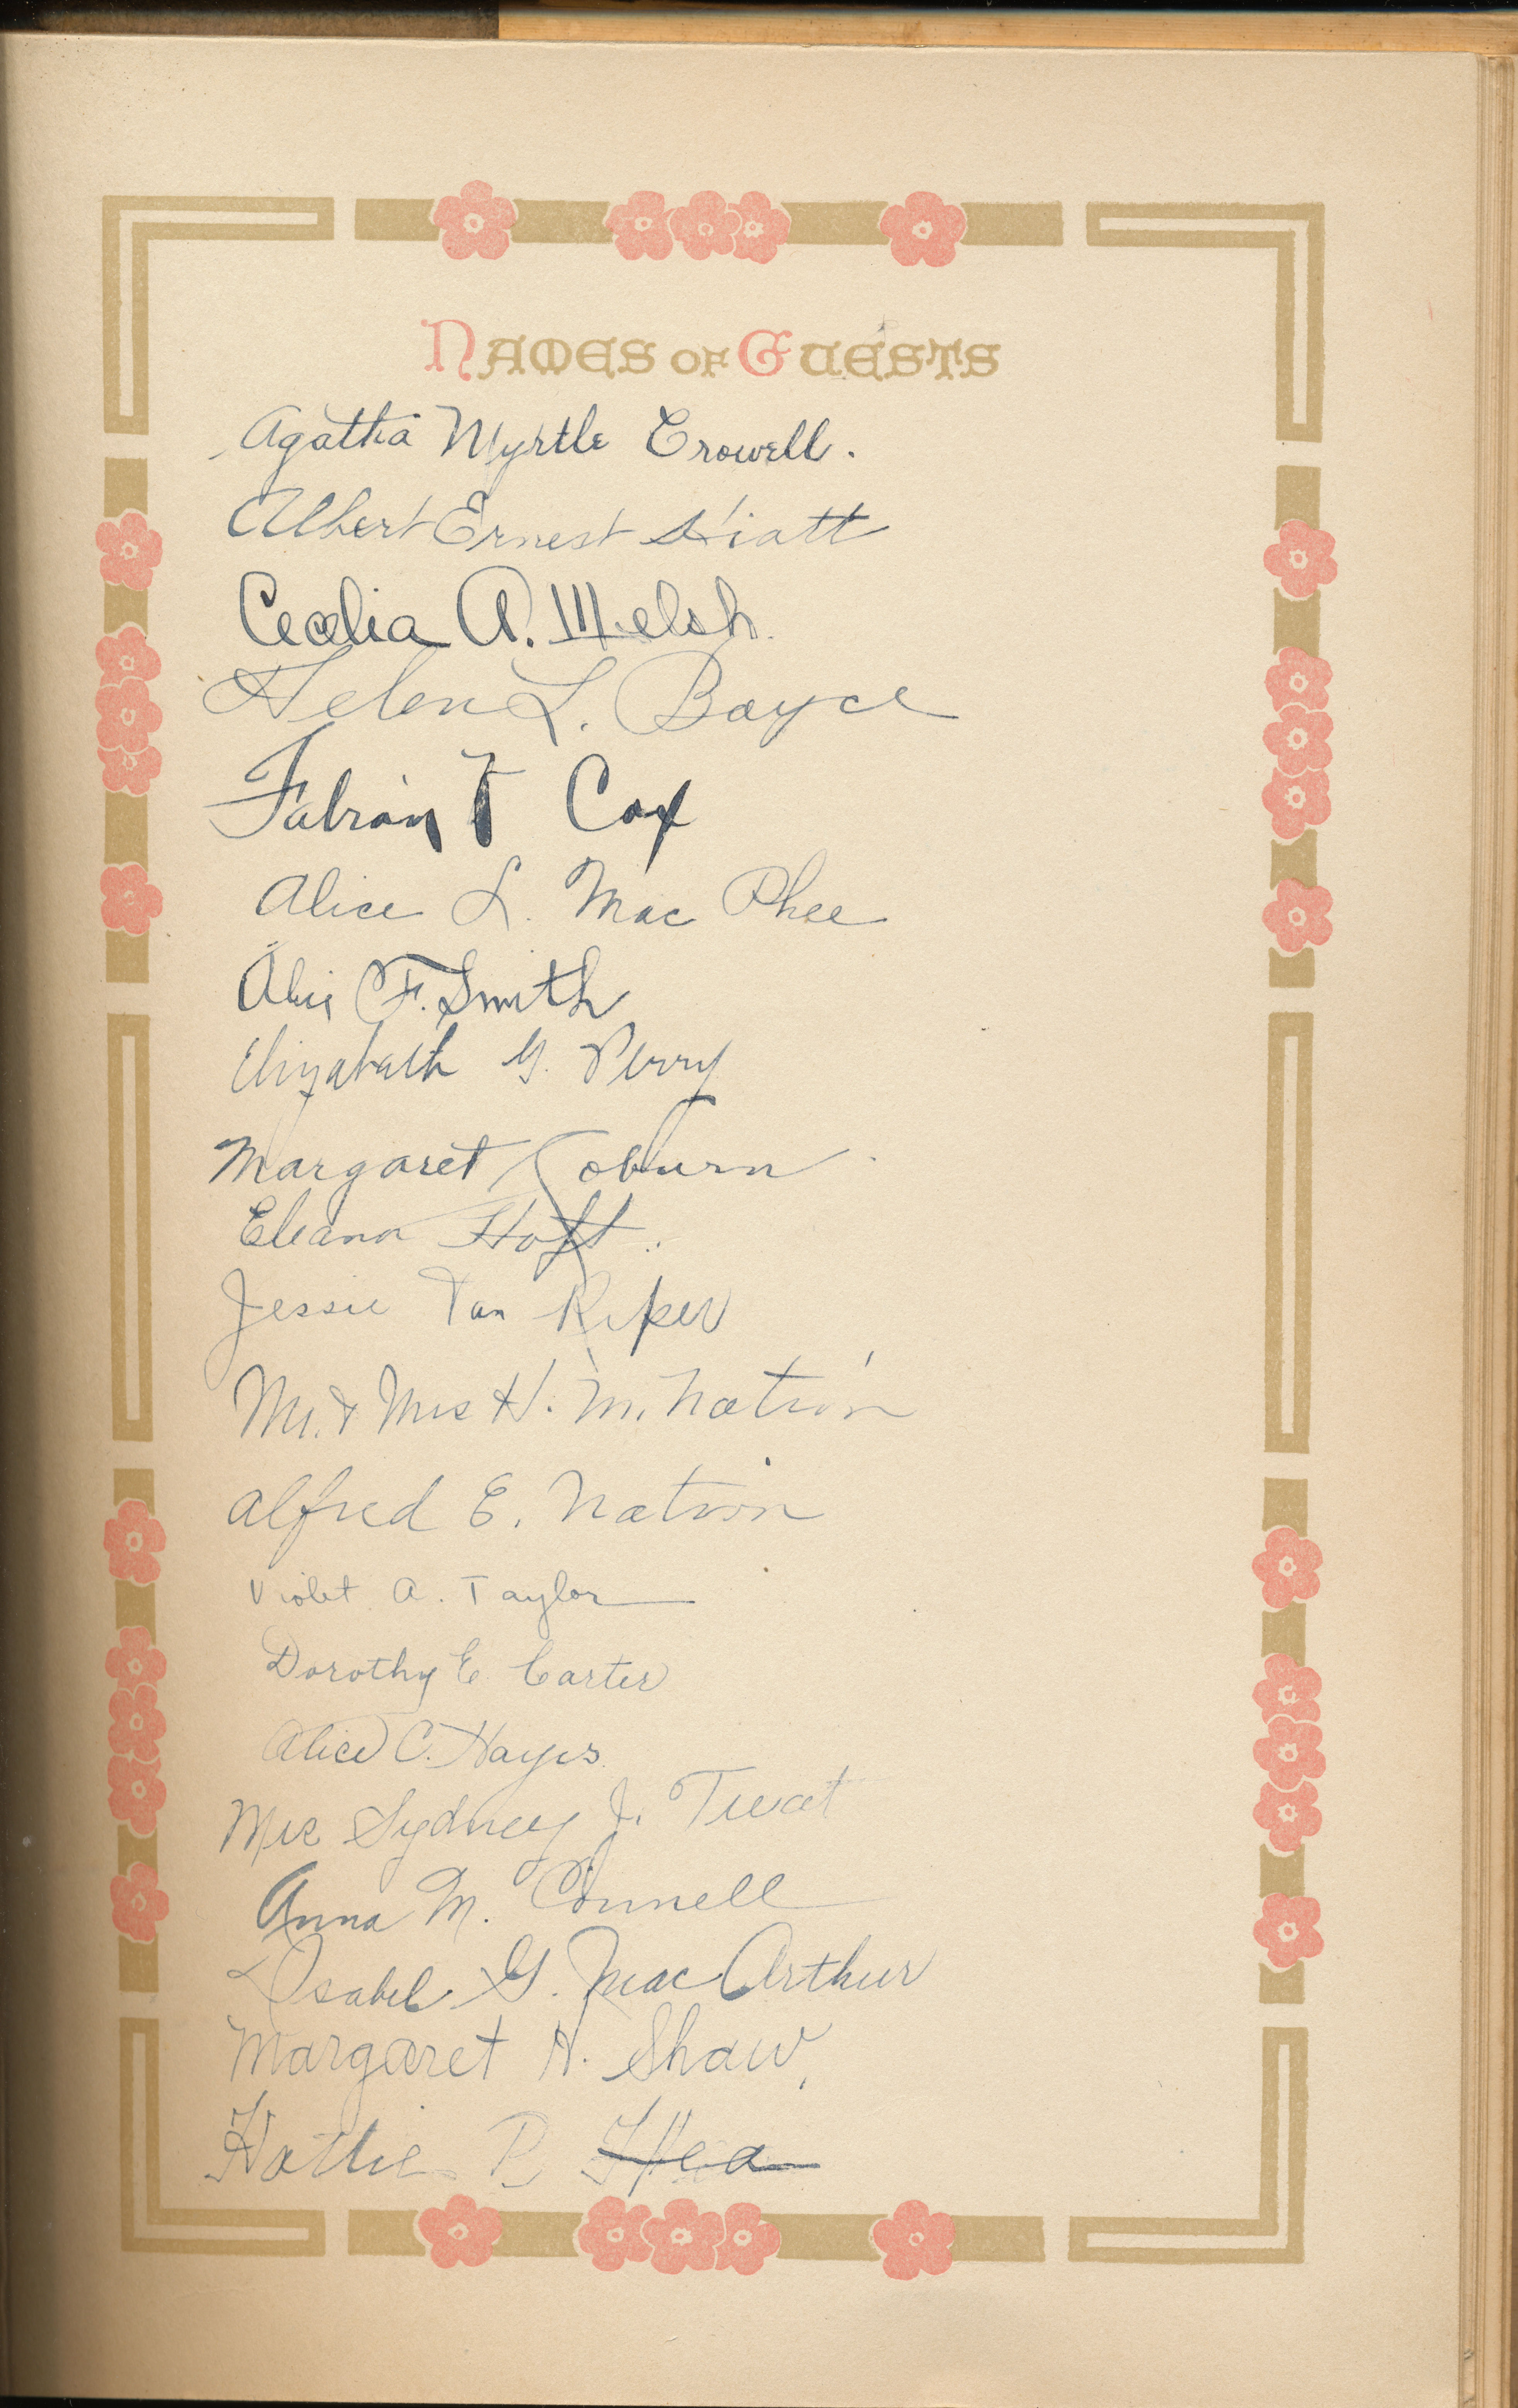 NAMES OF GUESTS
Agatha Myrtle Crowell.
Albert Ernest Hiatt
Cecelia A. Welsh.
Helen L. Bayce
Fabian F Cox
Alice L. Mac Phee
F. Smith
Elizabeth G. Perry
Margaret Coburn
Eleanor Hoft.
Jessie Van Riper
Mr. & Mrs H. M. Nation
Alfred E. Nation
Violet A. Taylor
Dorothy E. Carter
Alice C. Hayes.
Mrs Sydney J. Treat
Anna M. Connell
Isabel G. Mac Arthur
Margaret H. Shaw.
Hattie P.